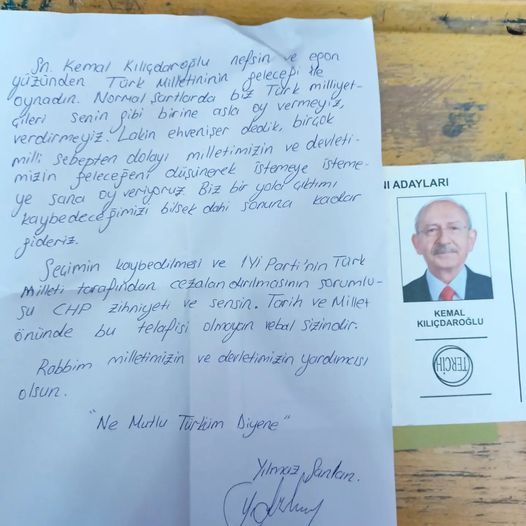 Sn. Kemal Kılıçdaroğlu nefsin ve egon
yüzünden Türk Milletininin geleceği ile
oynadın. Normal şartlarda biz Türk milliyet-
çileri senin gibi birine asla oy vermeyiz,
verdirmeyiz. Lakin ehvenişer dedik, birçok
milli sebepten dolayı milletimizin ve devleti-
mizin geleceğeni düşünerek isteme​ye isteme-
ye sana oy veriyoruz. Biz bir yola çıktımı
kaybedeceğimizi bilsek dahi sonuna kadar
gideriz.
Seçimin kaybedilmesi ve İYİ Parti'nin Türk
Milleti tarafından cezalandırılmasının sorumlu-
su CHP zihniyeti ve sensin. Tarih ve Millet
önünde bu telafisi olmayan vebal sizindir.
Rabbim milletimizin ve devletimizin yardımcısı
olsun.
"Ne Mutlu Türküm Diyene"
Yılmaz
NI ADAYLARI
KEMAL
KILIÇDAROĞLU
TERCİH